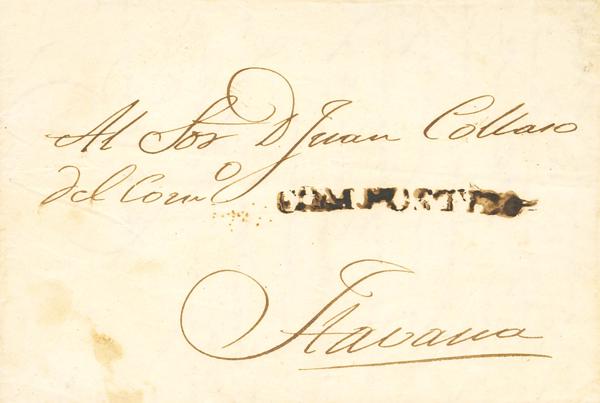 Al Sor D. Juan Collaso
del Com.º
COMPOSTE
Havana